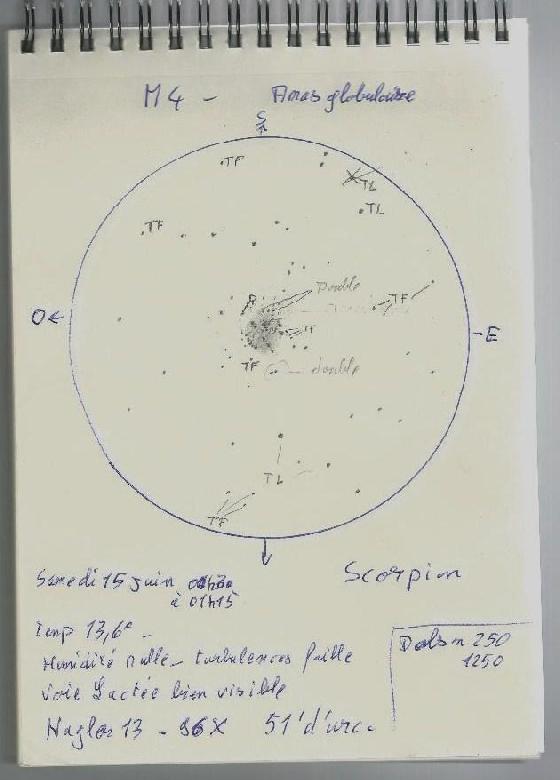 M4 - Amas globulaire
S
TF
TL
TL
TF
Double
TF
O
E
TF
TF
double
TL
TF
Samedi 15 juin
à 01h15
Scorpion
Temp 13,6°
Humidité nulle - turbulences faible
Voie Lactée bien visible
Nagler 13 - 96X 51' d'arc.
Dobson 250
1250